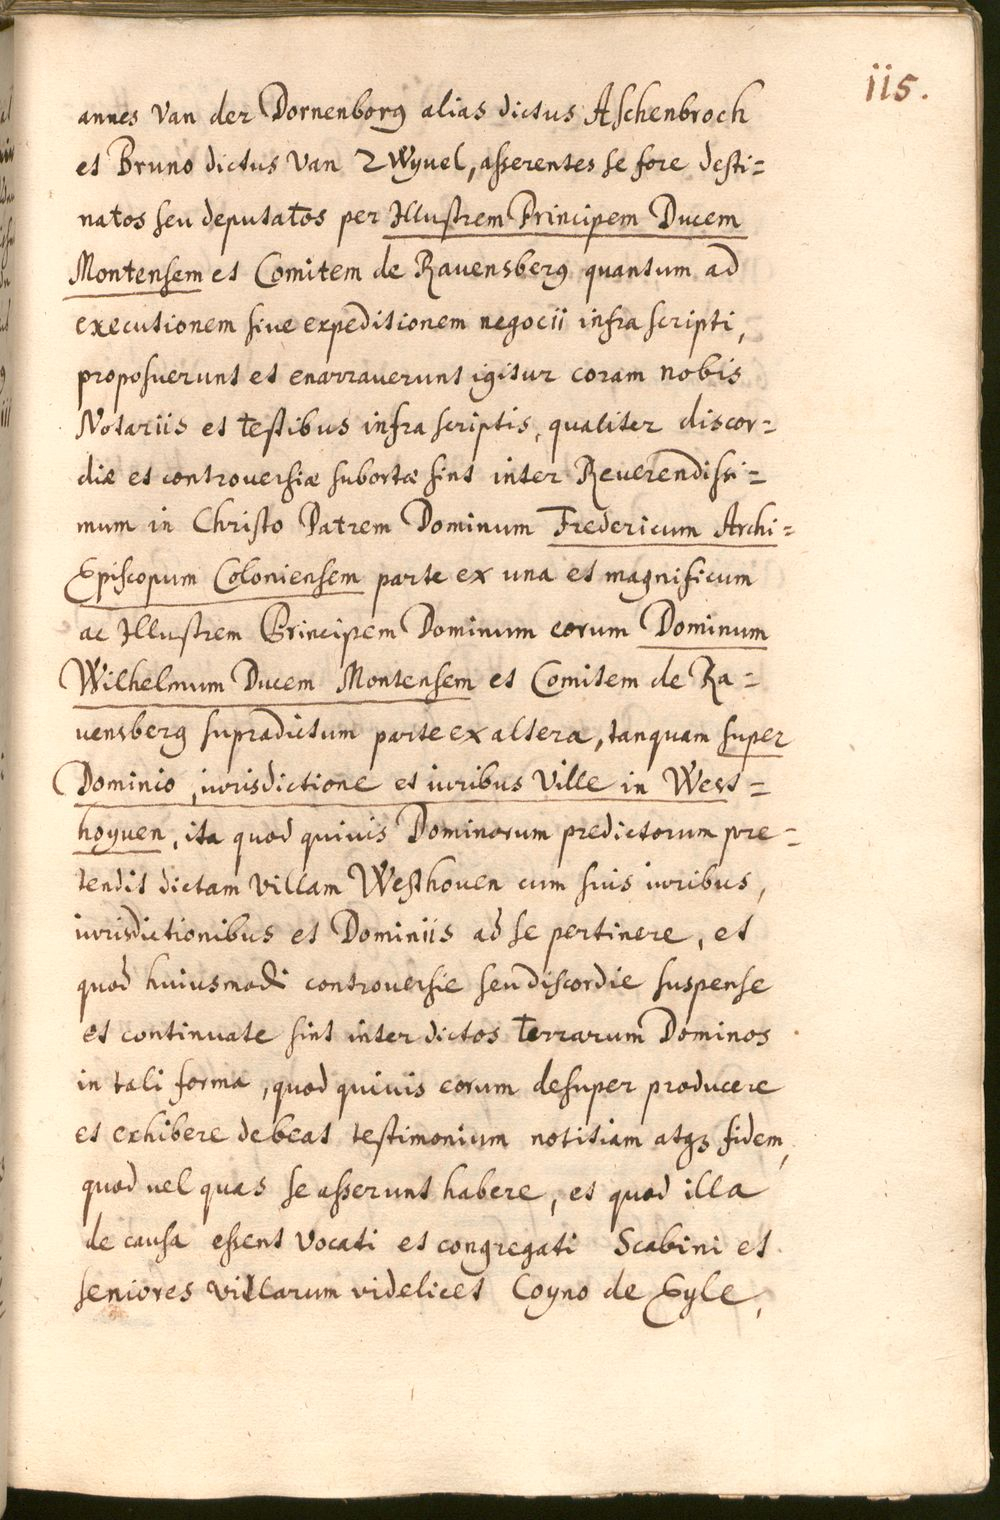 115.
annes van der Dornenborg alias dictus Aschenbroch
et Bruno dictus van Zwyvel, asserentes se fore desti=
natos seu deputatos per Illustrem Principem Ducem
Montensem et Comitem de Ravensberg quantum ad
executionem sive expeditionem negocii infra scripti,
proposuerunt et enarraverunt igitur coram nobis
Notariis et testibus infra scriptis, qualiter discor=
diæ et controversiæ subortæ sint inter Reverendissi=
mum in Christo Patrem Dominum Fredericum Archi=
Episcopum Coloniensem parte ex una et magnificum
ac Illustrem Principem Dominum eorum Dominum
Wilhelmum Ducem Montensem et Comitem de Ra=
uensberg supradictum parte ex altera, tanquam super
Dominio, iurisdictione et iuribus Ville in West=
hoyuen, ita quod quiuis Dominorum predictorum pre=
tendit dictam villam Westhouen cum suis iuribus,
iurisdictionibus et Dominiis ad se pertinere, et
quod huiusmodi controuersie seu discordie suspense
et continuate sint inter dictos terrarum Dominos
in tali forma, quod quiuis eorum desuper producere
et exhibere debeat testimonium notitiam atqz fidem,
quod uel quas se asserunt habere, et quod illa
de causa essent vocati et congregati Scabini et
seniores villarum videlicet Coyno de Eyle,